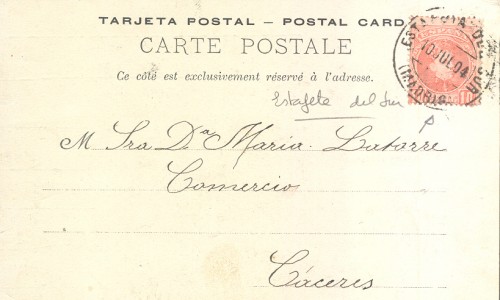 TARJETA POSTAL – POSTAL CARD
CARTE POSTALE
Ce côté est exclusivement réservé à l'adresse.
ESTAFETA DEL SUR
10 JUL 04
(MADRID)
Estafeta del Sur
M Sra Dª Maria Latorre
Comercio
Cáceres